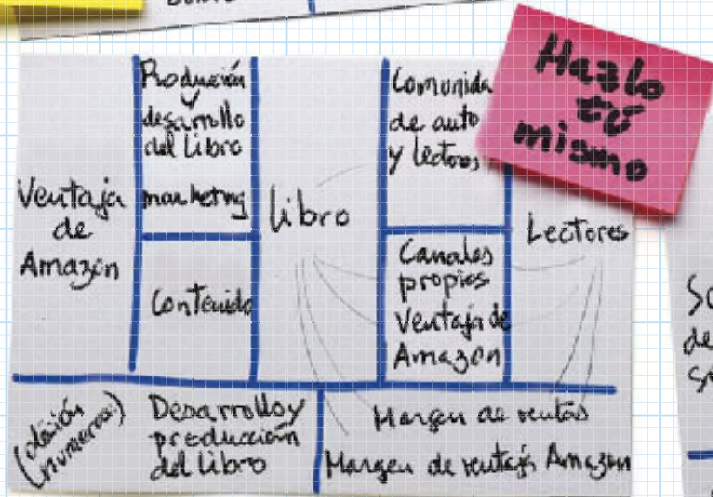 Hazlo
tú
mismo
Ventaja
de
Amazon
Producción
y
desarrollo
del libro
marketing
Contenido
libro
Comunida
de auto
y lectores
Canales
propios
Ventaja de
Amazon
Lectores
Desarrollo y
producción
del libro
Margen de ventas
Margen de ventaja Amazon